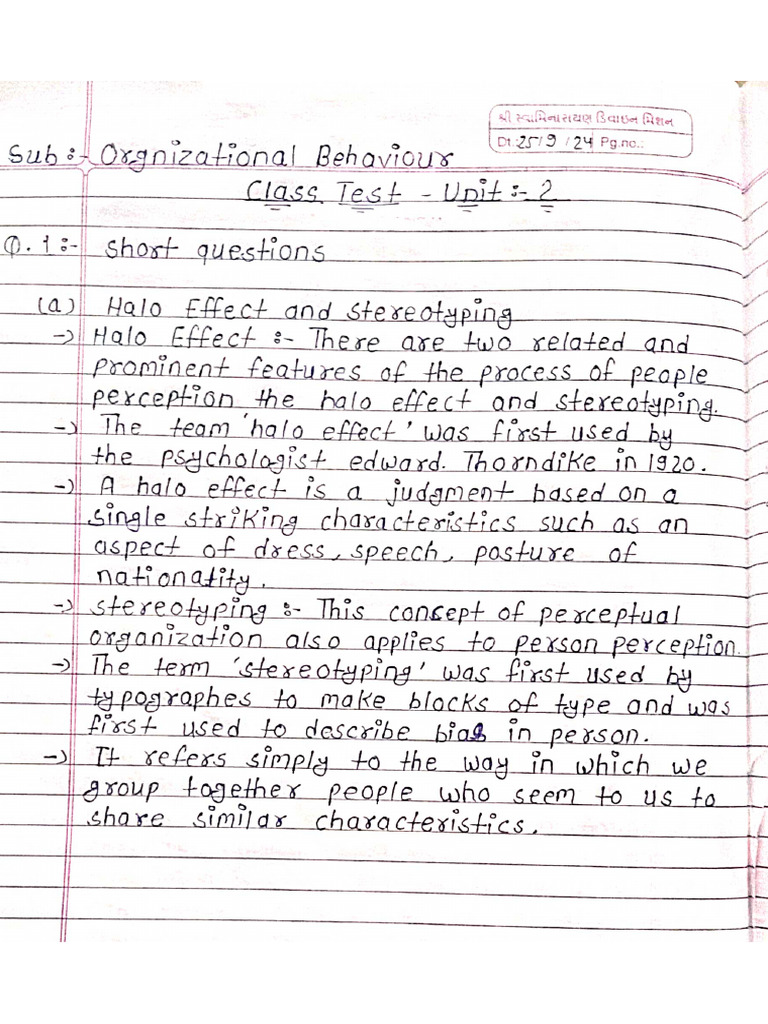 શ્રી સ્વામિનારાયણ ડિવાઇન મિશન
Dt. 25/9/24 Pg.no.:
Sub :- Orgnizational Behaviour
Class Test - Unit :- 2
Q.1 :- Short questions
(a) Halo Effect and stereotyping
-> Halo Effect :- There are two related and
prominent features of the process of people
perception the halo effect and stereotyping.
-> The team 'halo effect' was first used by
the psychologist edward. Thorndike in 1920.
-> A halo effect is a judgment based on a
single striking characteristics such as an
aspect of dress, speech, posture of
nationatity.
-> stereotyping :- This concept of perceptual
organization also applies to person perception.
-> The term 'stereotyping' was first used by
typographes to make blocks of type and was
first used to describe bias in person.
-> It refers simply to the way in which we
group together people who seem to us to
share similar characteristics.